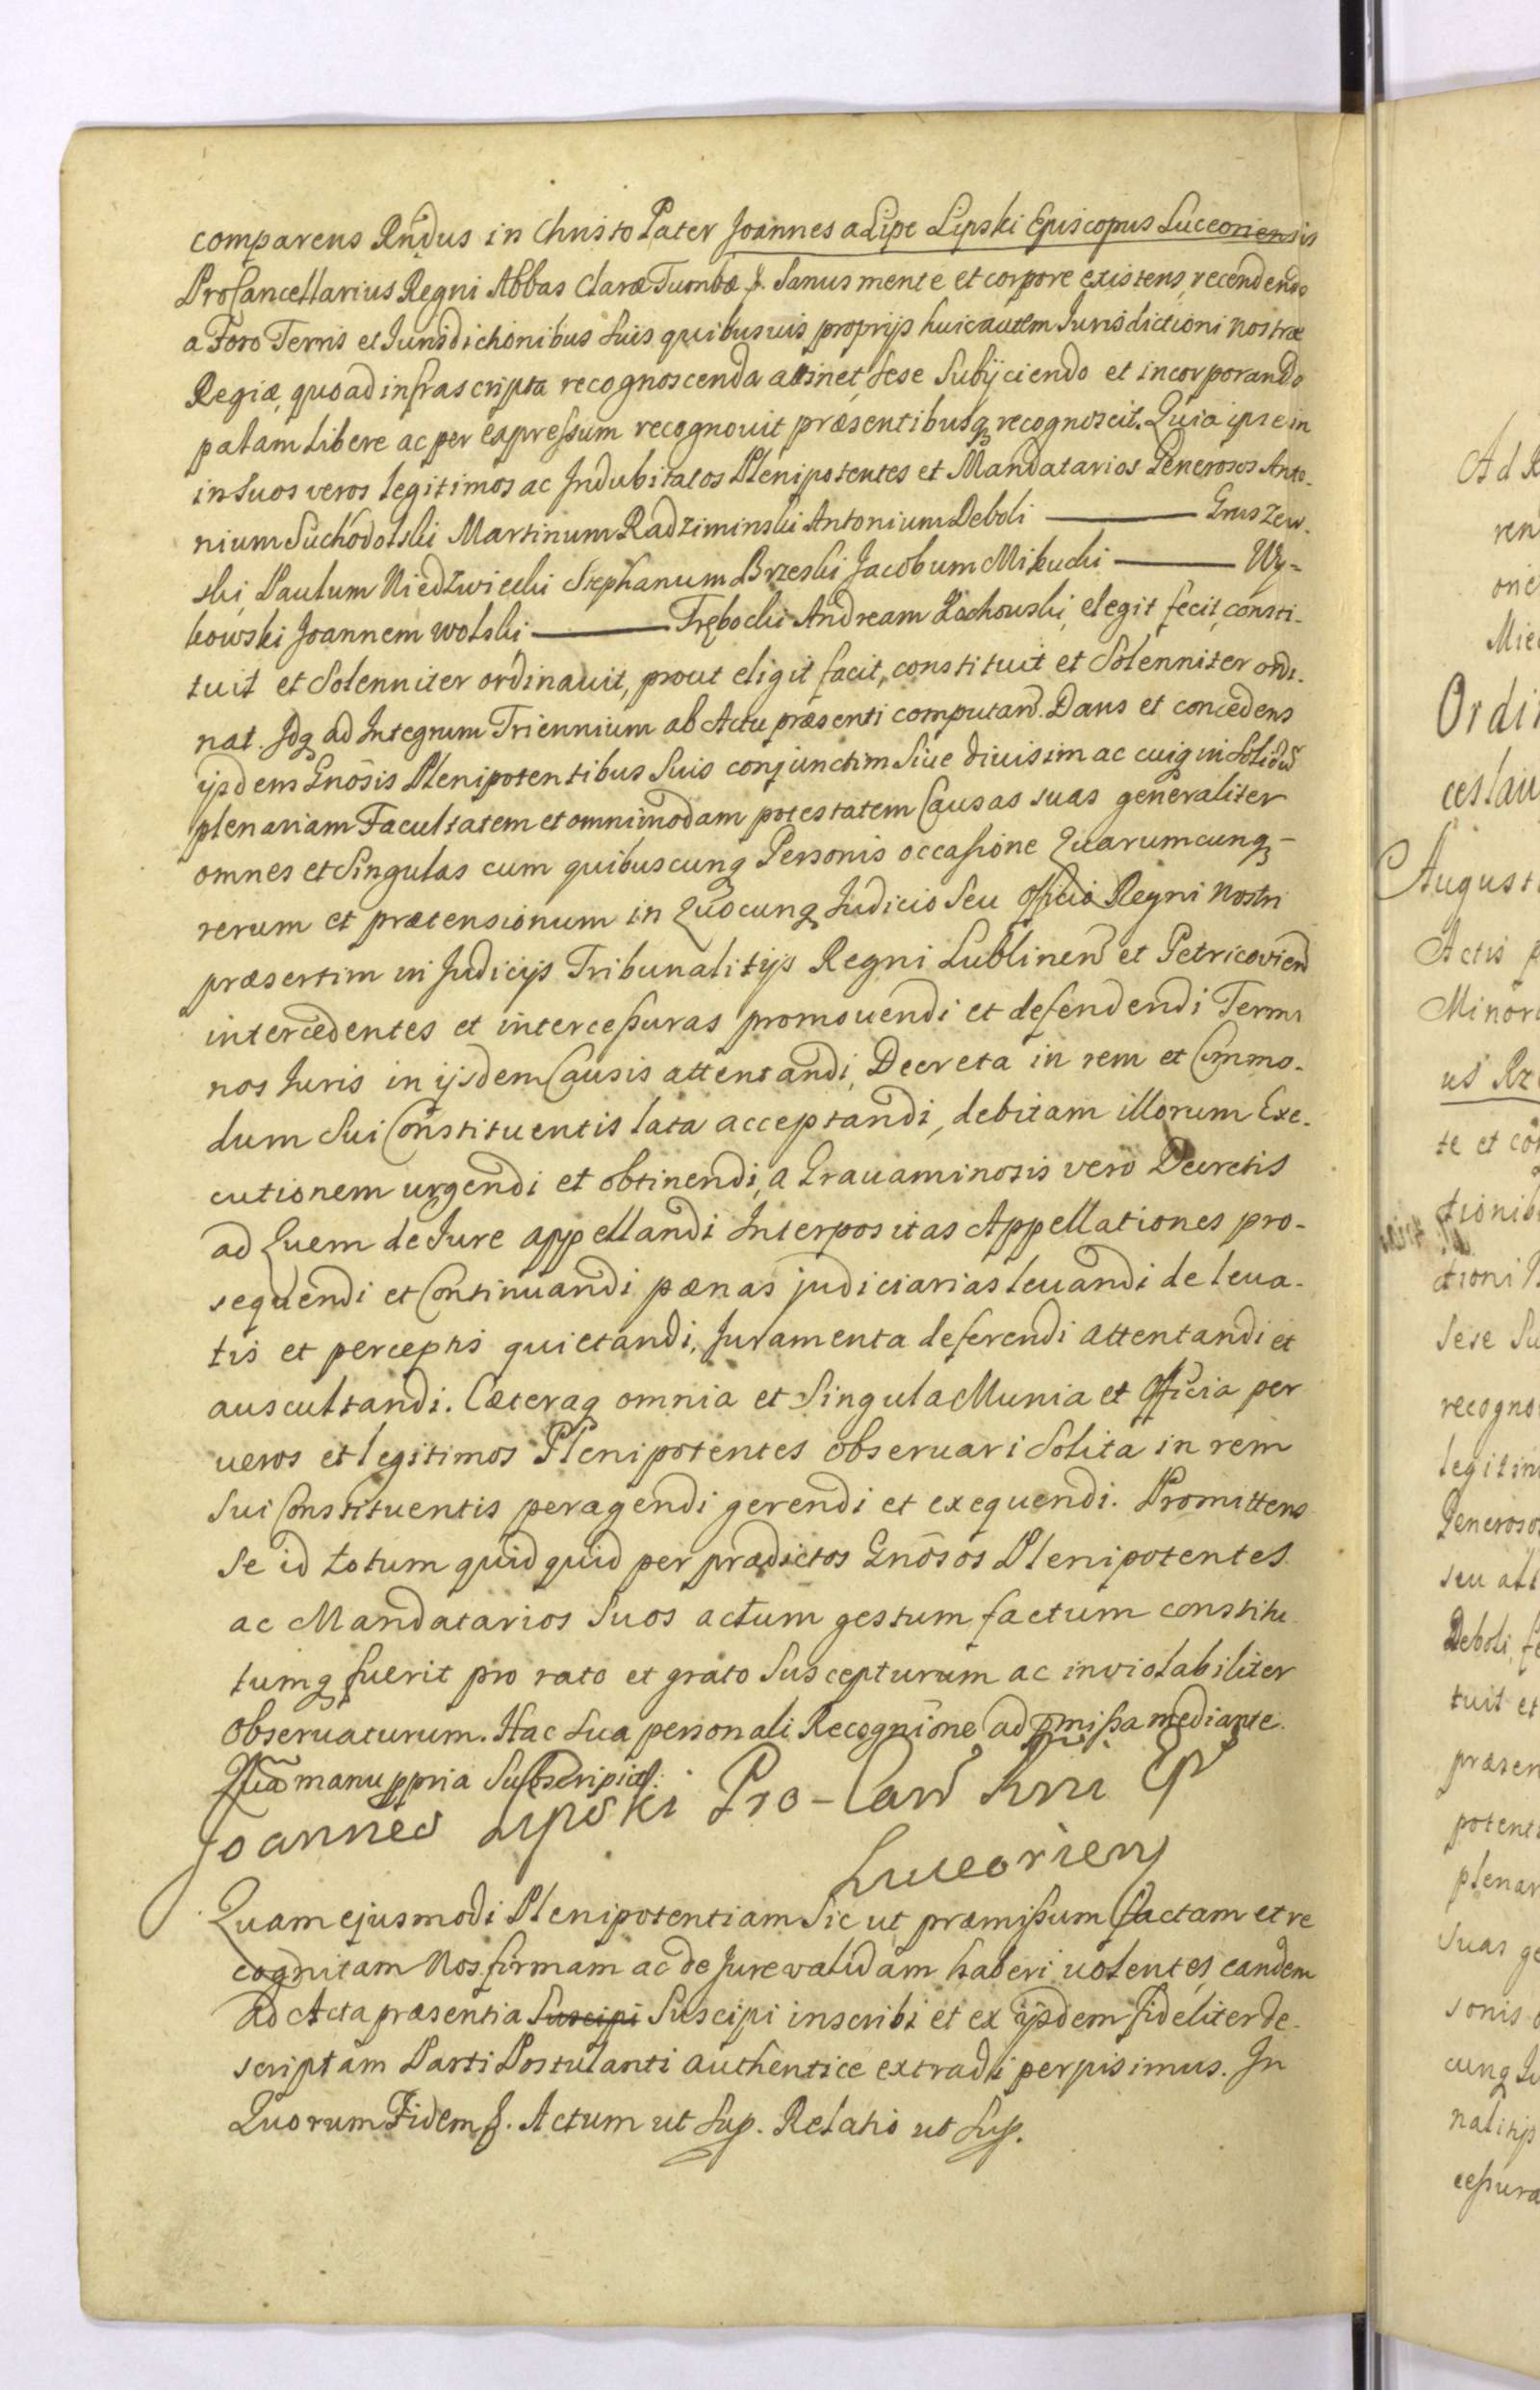 comparens Rndus in Christo Pater Joannes a Lipe Lipski Episcopus Luceoriensis
ProCancellarius Regni Abbas Claræ Tumbæ &. Sanus mente et corpore existens, recendendo
a Foro Terris et Jurisdictionibus suis quibusuis proprijs huic autem Jurisdictioni nostræ
Regiæ, quoad infrascripta recognoscenda attinet, sese Subijciendo et incorporando
palam Libere ac per expressum recognouit præsentibusq recognoscit. Quia ipse in
in Suos veros legitimos ac Indubitatos Plenipotentes et Mandatarios Generosos Anto-
nium Suchodolski Martinum Radziminski Antonium Deboli ——— Gruszew-
ski, Paulum Niedzwiecki Stephanum Brzeski Jacobum Mikucki ——— Wy-
kowski Joannem Wolski ——— Trębocki Andream Łochowski, elegit fecit, consti-
tuit et Solenniter ordinauit, prout eligit facit, constituit et Solenniter ordi-
nat. Idq ad Integrum Triennium ab Actu præsenti computan. Dans et concedens
ijsdem Gnosis Plenipotentibus Suis conjunctim Siue diuisim ac cuiq in Solidũ
plenariam Facultatem et omnimodam potestatem Causas suas generaliter
omnes et Singulas cum quibuscunq Personis occasione Quarumcunq-
rerum et prætensionum in Quocunq Judicio Seu Officio Regni Nostri
præsertim in Judicijs Tribunalitijs Regni Lublinen et Petricovien
intercedentes et intercessuras promouendi et defendendi Termi
nos Juris in ijsdem Causis attentandi, Decreta in rem et Commo-
dum Sui Constituentis lata acceptandi, debitam illorum Exe-
cutionem urgendi et obtinendi, a Grauaminosis vero Decretis
ad Quem de Jure appellandi Interpositas Appellationes pro-
sequendi et Continuandi pænas judiciarias leuandi de leua-
tis et perceptis quietandi, Juramenta deferendi attentandi et
auscultandi. Cæteraq omnia et Singula Munia et Officia per
ueros et legitimos Plenipotentes observari Solita in rem
Sui Constituentis peragendi gerendi et exequendi. Promittens
Se id totum quidquid per prædictos Gnosos Plenipotentes
ac Mandatarios Suos actum gestum factum constitu
tumq fuerit pro rato et grato Suscepturum ac inviolabiliter
Observaturum. Hac Sua personali Recognione ad pmissa mediante.
Qua manu ppria Subscripsit.
Joannes Lipski Pro-Can Rni Ep
Luceorien
Quam ejusmodi Plenipotentiam Sic ut præmissum factam et re
cognitam Nos firmam ac de Jure validam haberi uolentes, eandem
ad Acta præsentia Suscipi Suscipi inscribi et ex ijsdem fideliter de-
scriptam Parti Postulanti authentice extradi permisimus. In
Quorum Fidem &. Actum ut Sup. Relatio ut Sup.
Ad R
ren
one
Mie
Ordi
ceslau
August
Actis p
Minor
us Rz
te et co
tionib
ctioni
Sese Su
recogno
legitim
Generoso
seu
Deboli, fe
tuit et
præsen
potent
plenar
Suas ge
sonis o
cunq Ju
nalitijs
cessura